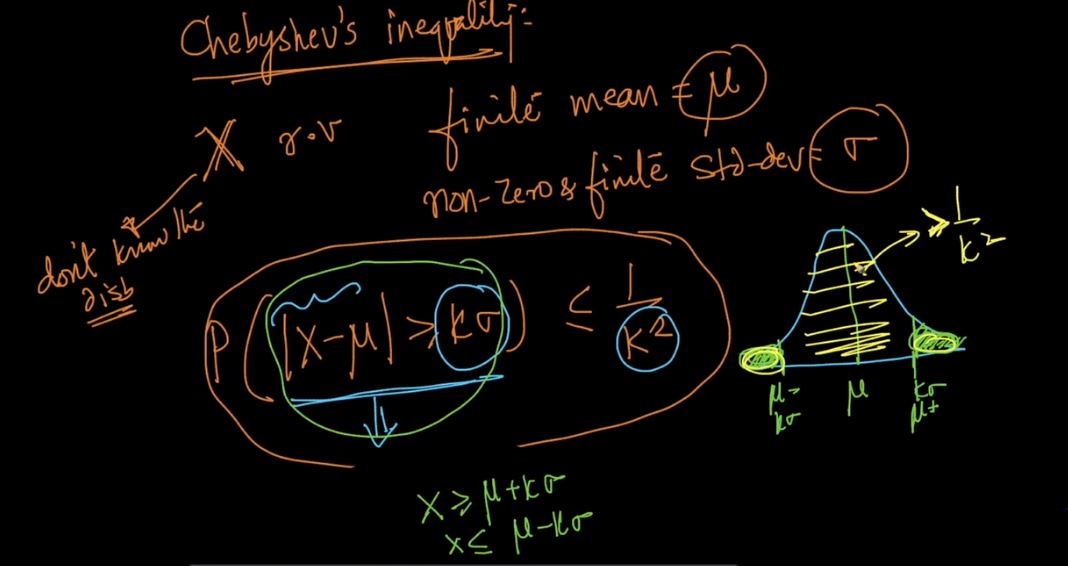 Chebyshev's inequality:
X r.v finite mean = μ
non-zero & finite std-dev = σ
don't know the
disb
P(|X-μ| ≥ kσ) ≤ 1/k²
≥ 1/k²
μ-
kσ
μ
kσ
μ+
X ≥ μ+kσ
x ≤ μ-kσ